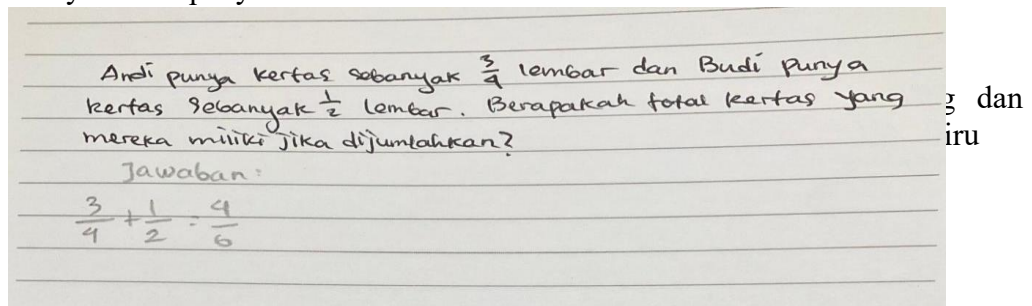 Andi punya kertas sebanyak 3/4 lembar dan Budi punya
kertas sebanyak 1/2 lembar. Berapakah total kertas yang
mereka miliki jika dijumlahkan?
Jawaban:
3/4 + 1/2 = 4/6
dan
iru